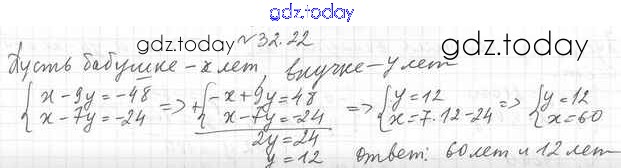 gdz.today
gdz.today №32.22 gdz.today
Пусть бабушке - x лет, внучке - y лет
{x-9y=-48 x-7y=-24 => +{-x+9y=48 x-7y=-24 => {y=12 x=7·12-24 => {y=12 x=60
2y=24
y=12 Ответ: 60 лет и 12 лет